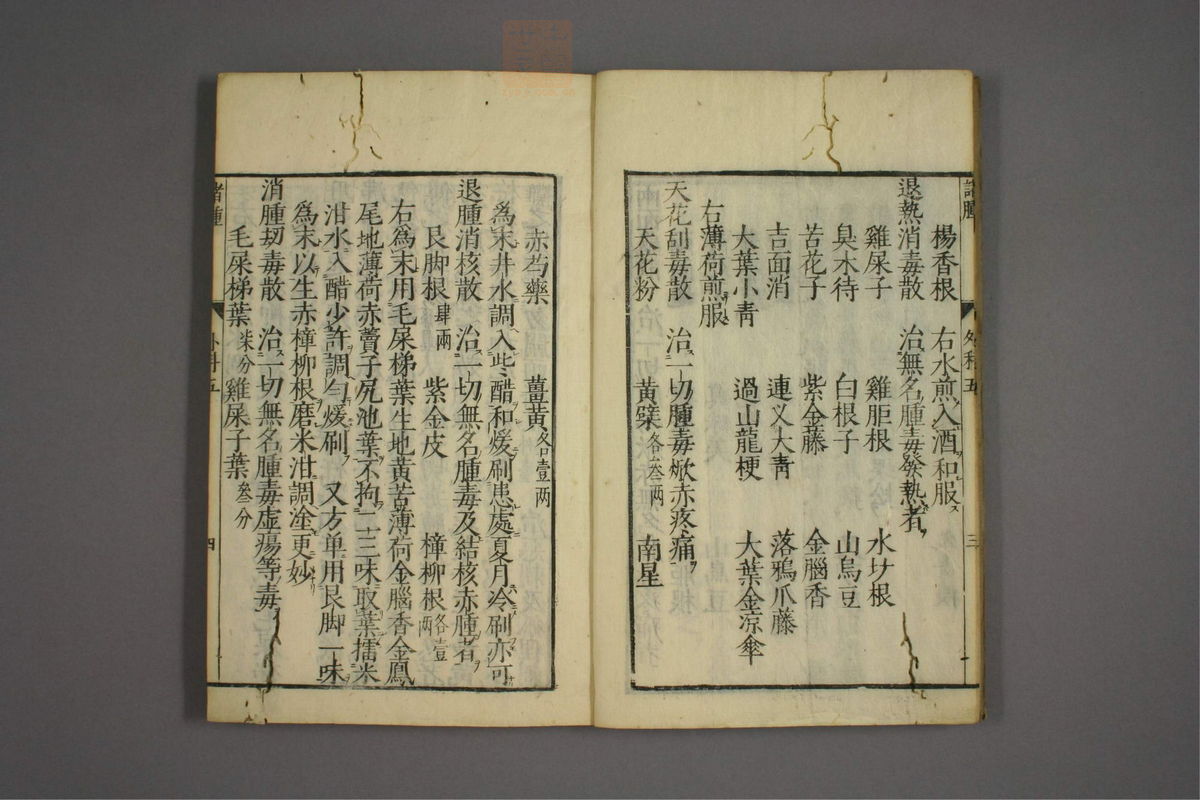 楊香根　右水煎入酒和服
退熱消毒散　治無名腫毒發熱者
雞屎子　雞胵根　水圤根
臭木待　白根子　山烏豆
苦花子　紫金藤　金腦香
吉面消　連义大青　落鴉爪藤
大葉小青　過山龍梗　大葉金凉傘
右薄荷煎服
天花刮毒散　治一切腫毒焮赤疼痛
天花粉　黃蘗各叁兩　南星
赤芍藥　薑黃各壹兩
爲末井水調入些醋和煖刷患處夏月冷刷亦可
退腫消核散　治一切無名腫毒及結核赤腫者
艮脚根肆兩　紫金皮　樟柳根各壹兩
右爲末用毛屎梯葉生地黃苦薄荷金腦香金鳳
尾地薄荷赤藚子尻池葉不拘二三味取葉擂米
泔水入醋少許調勻煖刷　又方单用艮脚一味
爲末以生赤樟柳根磨米泔調塗更妙
消腫刼毒散　治一切無名腫毒虛瘍等毒
毛屎梯葉柒分　雞屎子葉叁分
諸腫　外科五　三
諸腫　外科五　四